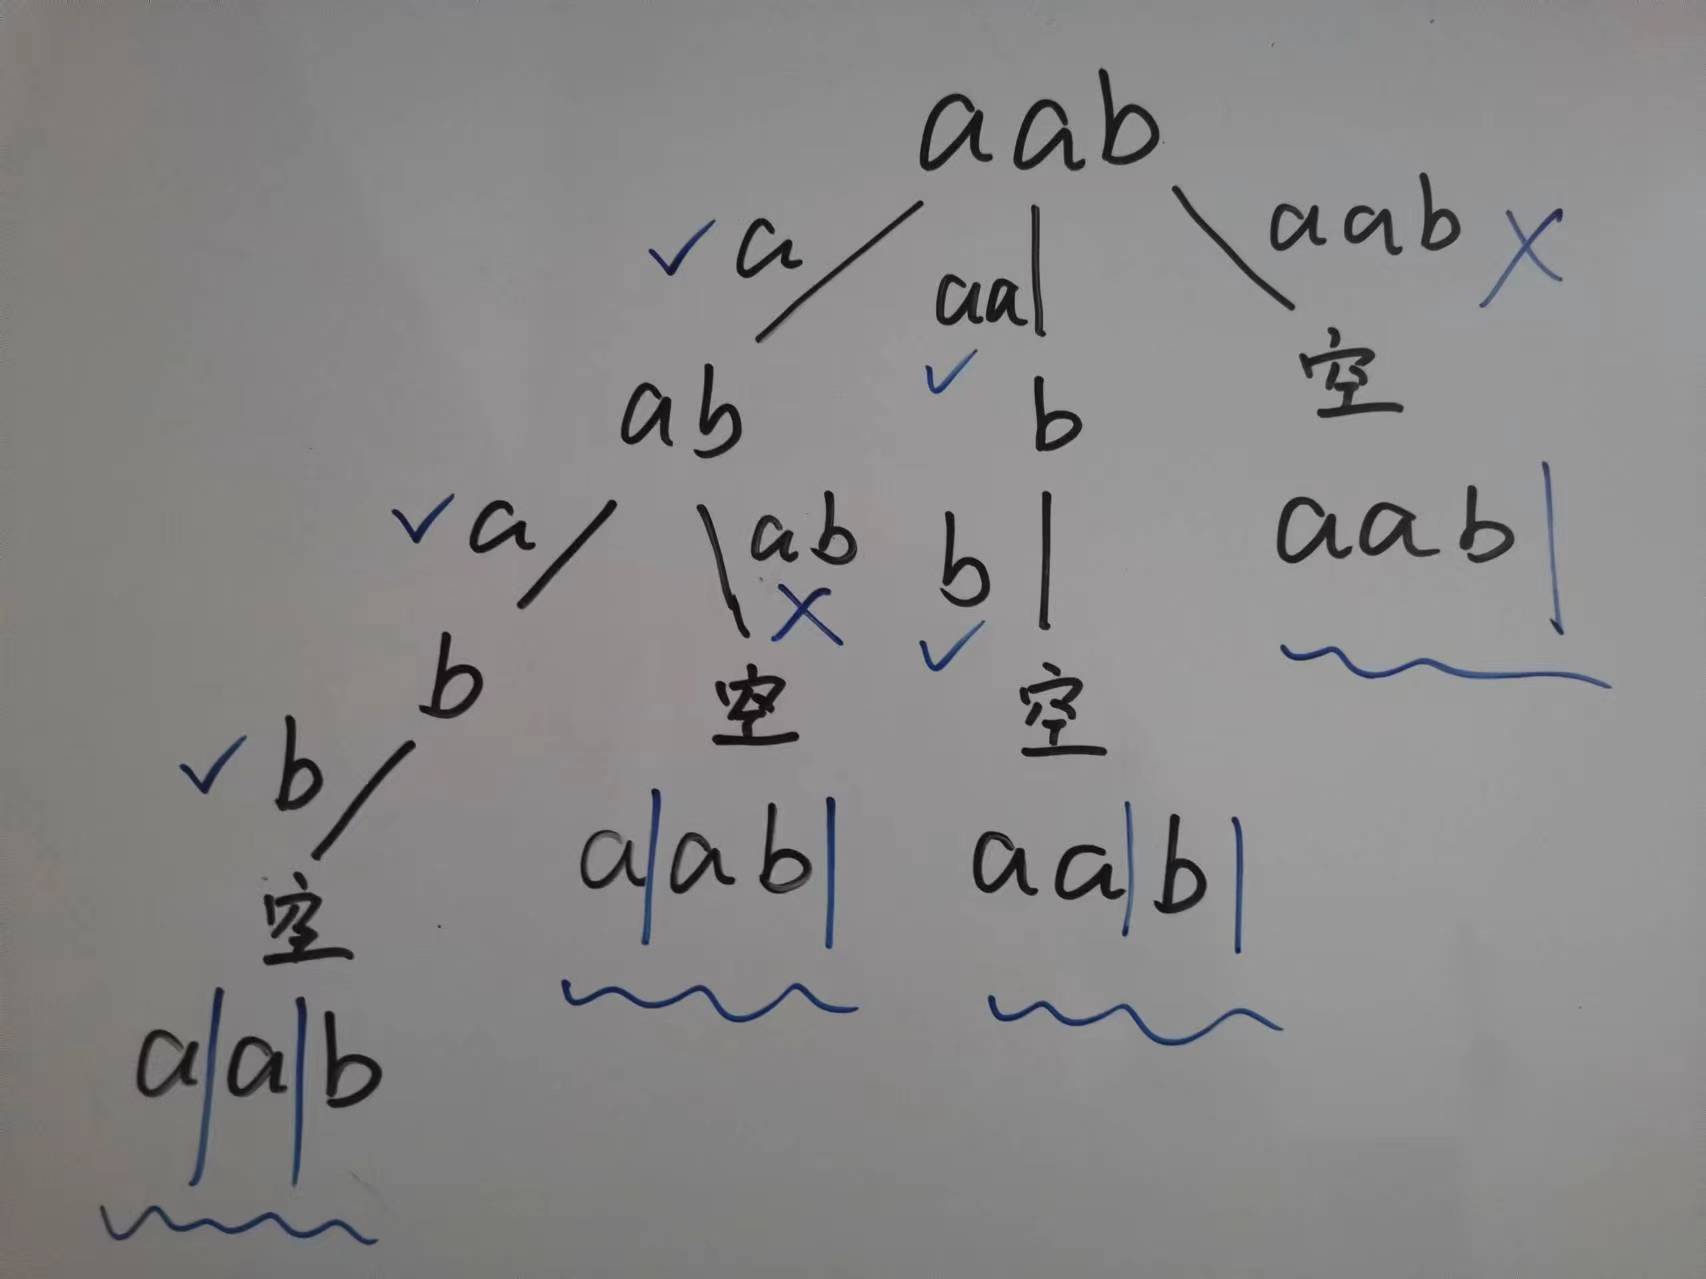 aab
✓ a aa aab ✗
✓
ab b 空
✓ a ab b aab|
✗ ✓
b 空 空
✓ b a|ab| aa|b|
空
a|a|b